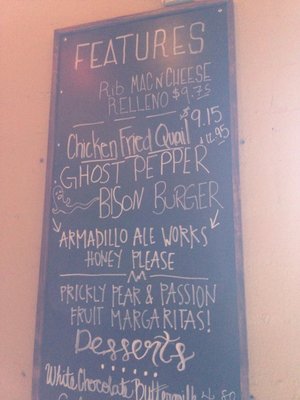 FEATURES
Rib MAC N CHEESE
RELLENO $9.75
$9.15
Chicken Fried Quail $12.95
GHOST PEPPER
BISON BURGER
ARMADILLO ALE WORKS
HONEY PLEASE
PRICKLY PEAR & PASSION
FRUIT MARGARITAS!
Desserts
White Chocolate